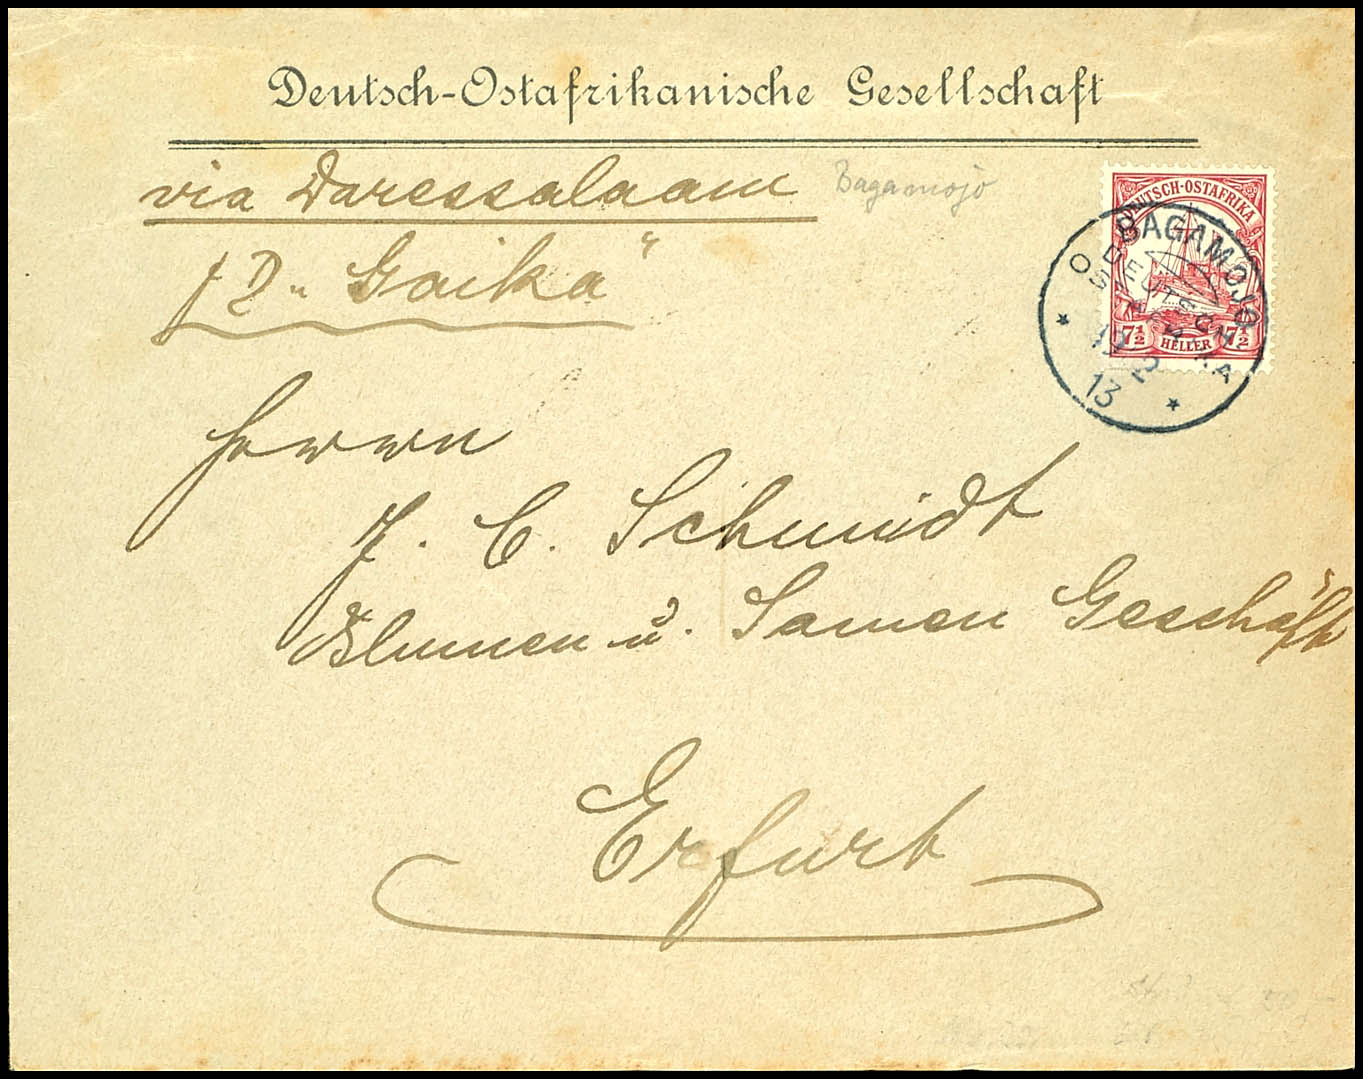 Deutsch-Ostafrikanische Gesellschaft
via Daressalaam
Bagamojo
p D. „Gaika“
DEUTSCH-OSTAFRIKA
7½ HELLER 7½
BAGAMOJO
DEUTSCH
OSTAFRIKA
13
Herrn
J. C. Schmidt
Blumen u. Samen Geschäft
Erfurt